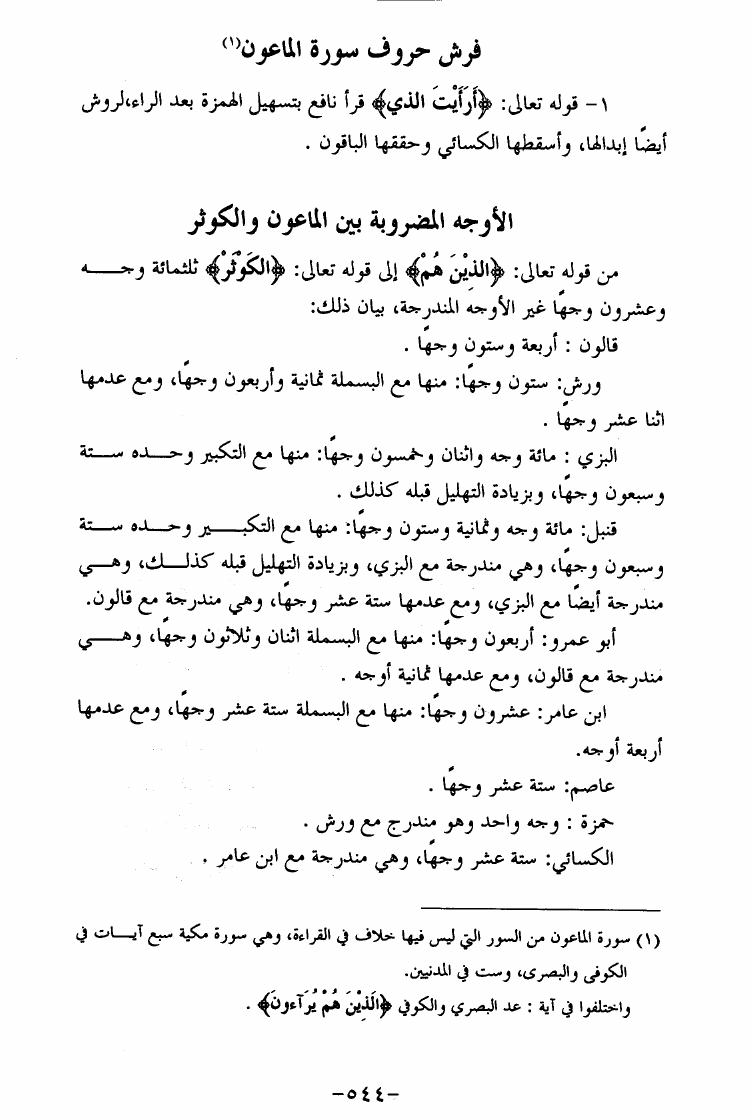 فرش حروف سورة الماعون(١)
١- قوله تعالى: ﴿أَرَأَيْتَ الذي﴾ قرأ نافع بتسهيل الهمزة بعد الراء،لروش
أيضًا إبدالها، وأسقطها الكسائي وحققها الباقون .
الأوجه المضروبة بين الماعون والكوثر
من قوله تعالى: ﴿الذِيْنَ هُمْ﴾ إلى قوله تعالى: ﴿الكَوْثَرَ﴾ ثلثمائة وجـــه
وعشرون وجهًا غير الأوجه المندرجة، بيان ذلك:
قالون : أربعة وستون وجهًا .
ورش: ستون وجهًا: منها مع البسملة ثمانية وأربعون وجهًا، ومع عدمها
اثنا عشر وجهًا .
البزي : مائة وجه واثنان وخمسون وجهًا: منها مع التكبير وحـــده ســـتة
وسبعون وجهًا، وبزيادة التهليل قبله كذلك .
قنبل: مائة وجه وثمانية وستون وجهًا: منها مع التكبـــير وحـــده ســـتة
وسبعون وجهًا، وهي مندرجة مع البزي، وبزيادة التهليل قبله كذلـــك، وهـــي
مندرجة أيضًا مع البزي، ومع عدمها ستة عشر وجهًا، وهي مندرجة مع قالون.
أبو عمرو: أربعون وجهًا: منها مع البسملة اثنان وثلاثون وجهًا، وهـــي
مندرجة مع قالون، ومع عدمها ثمانية أوجه .
ابن عامر: عشرون وجهًا: منها مع البسملة ستة عشر وجهًا، ومع عدمها
أربعة أوجه.
عاصم: ستة عشر وجهًا .
حمزة : وجه واحد وهو مندرج مع ورش .
الكسائي: ستة عشر وجهًا، وهي مندرجة مع ابن عامر .
(١) سورة الماعون من السور التي ليس فيها خلاف في القراءة، وهي سورة مكية سبع آيـــات في
الكوفى والبصرى، وست في المدنيين.
واختلفوا في آية : عد البصري والكوفي ﴿الَذِيْنَ هُمْ يُرَآءونَ﴾ .
-٥٤٤-